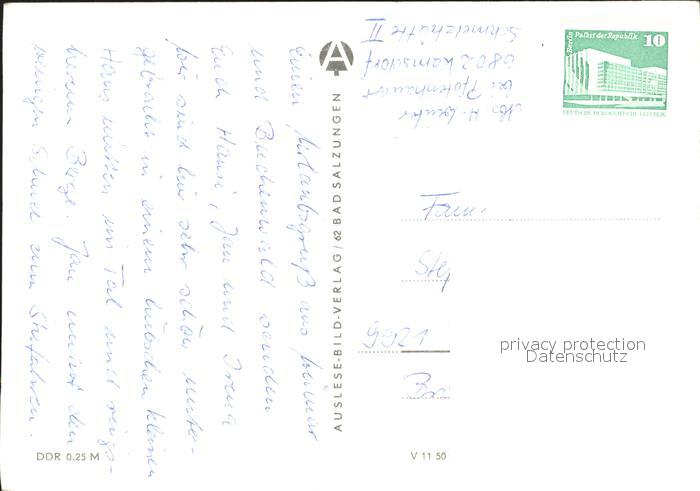 Einen Urlaubsgruß aus Weimar
und Buchenwald senden
Euch Hansi, Jan und Irena
Wir sind hier sehr schön unter-
gebracht in einem hübschen kleinen
Haus mitten im Tal und rings-
herum Berge. Jan nutzt den
wenigen Schnee zum Skifahren.
DDR 0,25 M
AUSLESE-BILD-VERLAG / 62 BAD SALZUNGEN
A
V 11 50
Abs. H.
bei
6802 Kamsdorf
Schmelzhütte II
Berlin, Palast der Republik
10
DEUTSCHE DEMOKRATISCHE REPUBLIK
Fam.
Ste
9921
privacy protection
Datenschutz